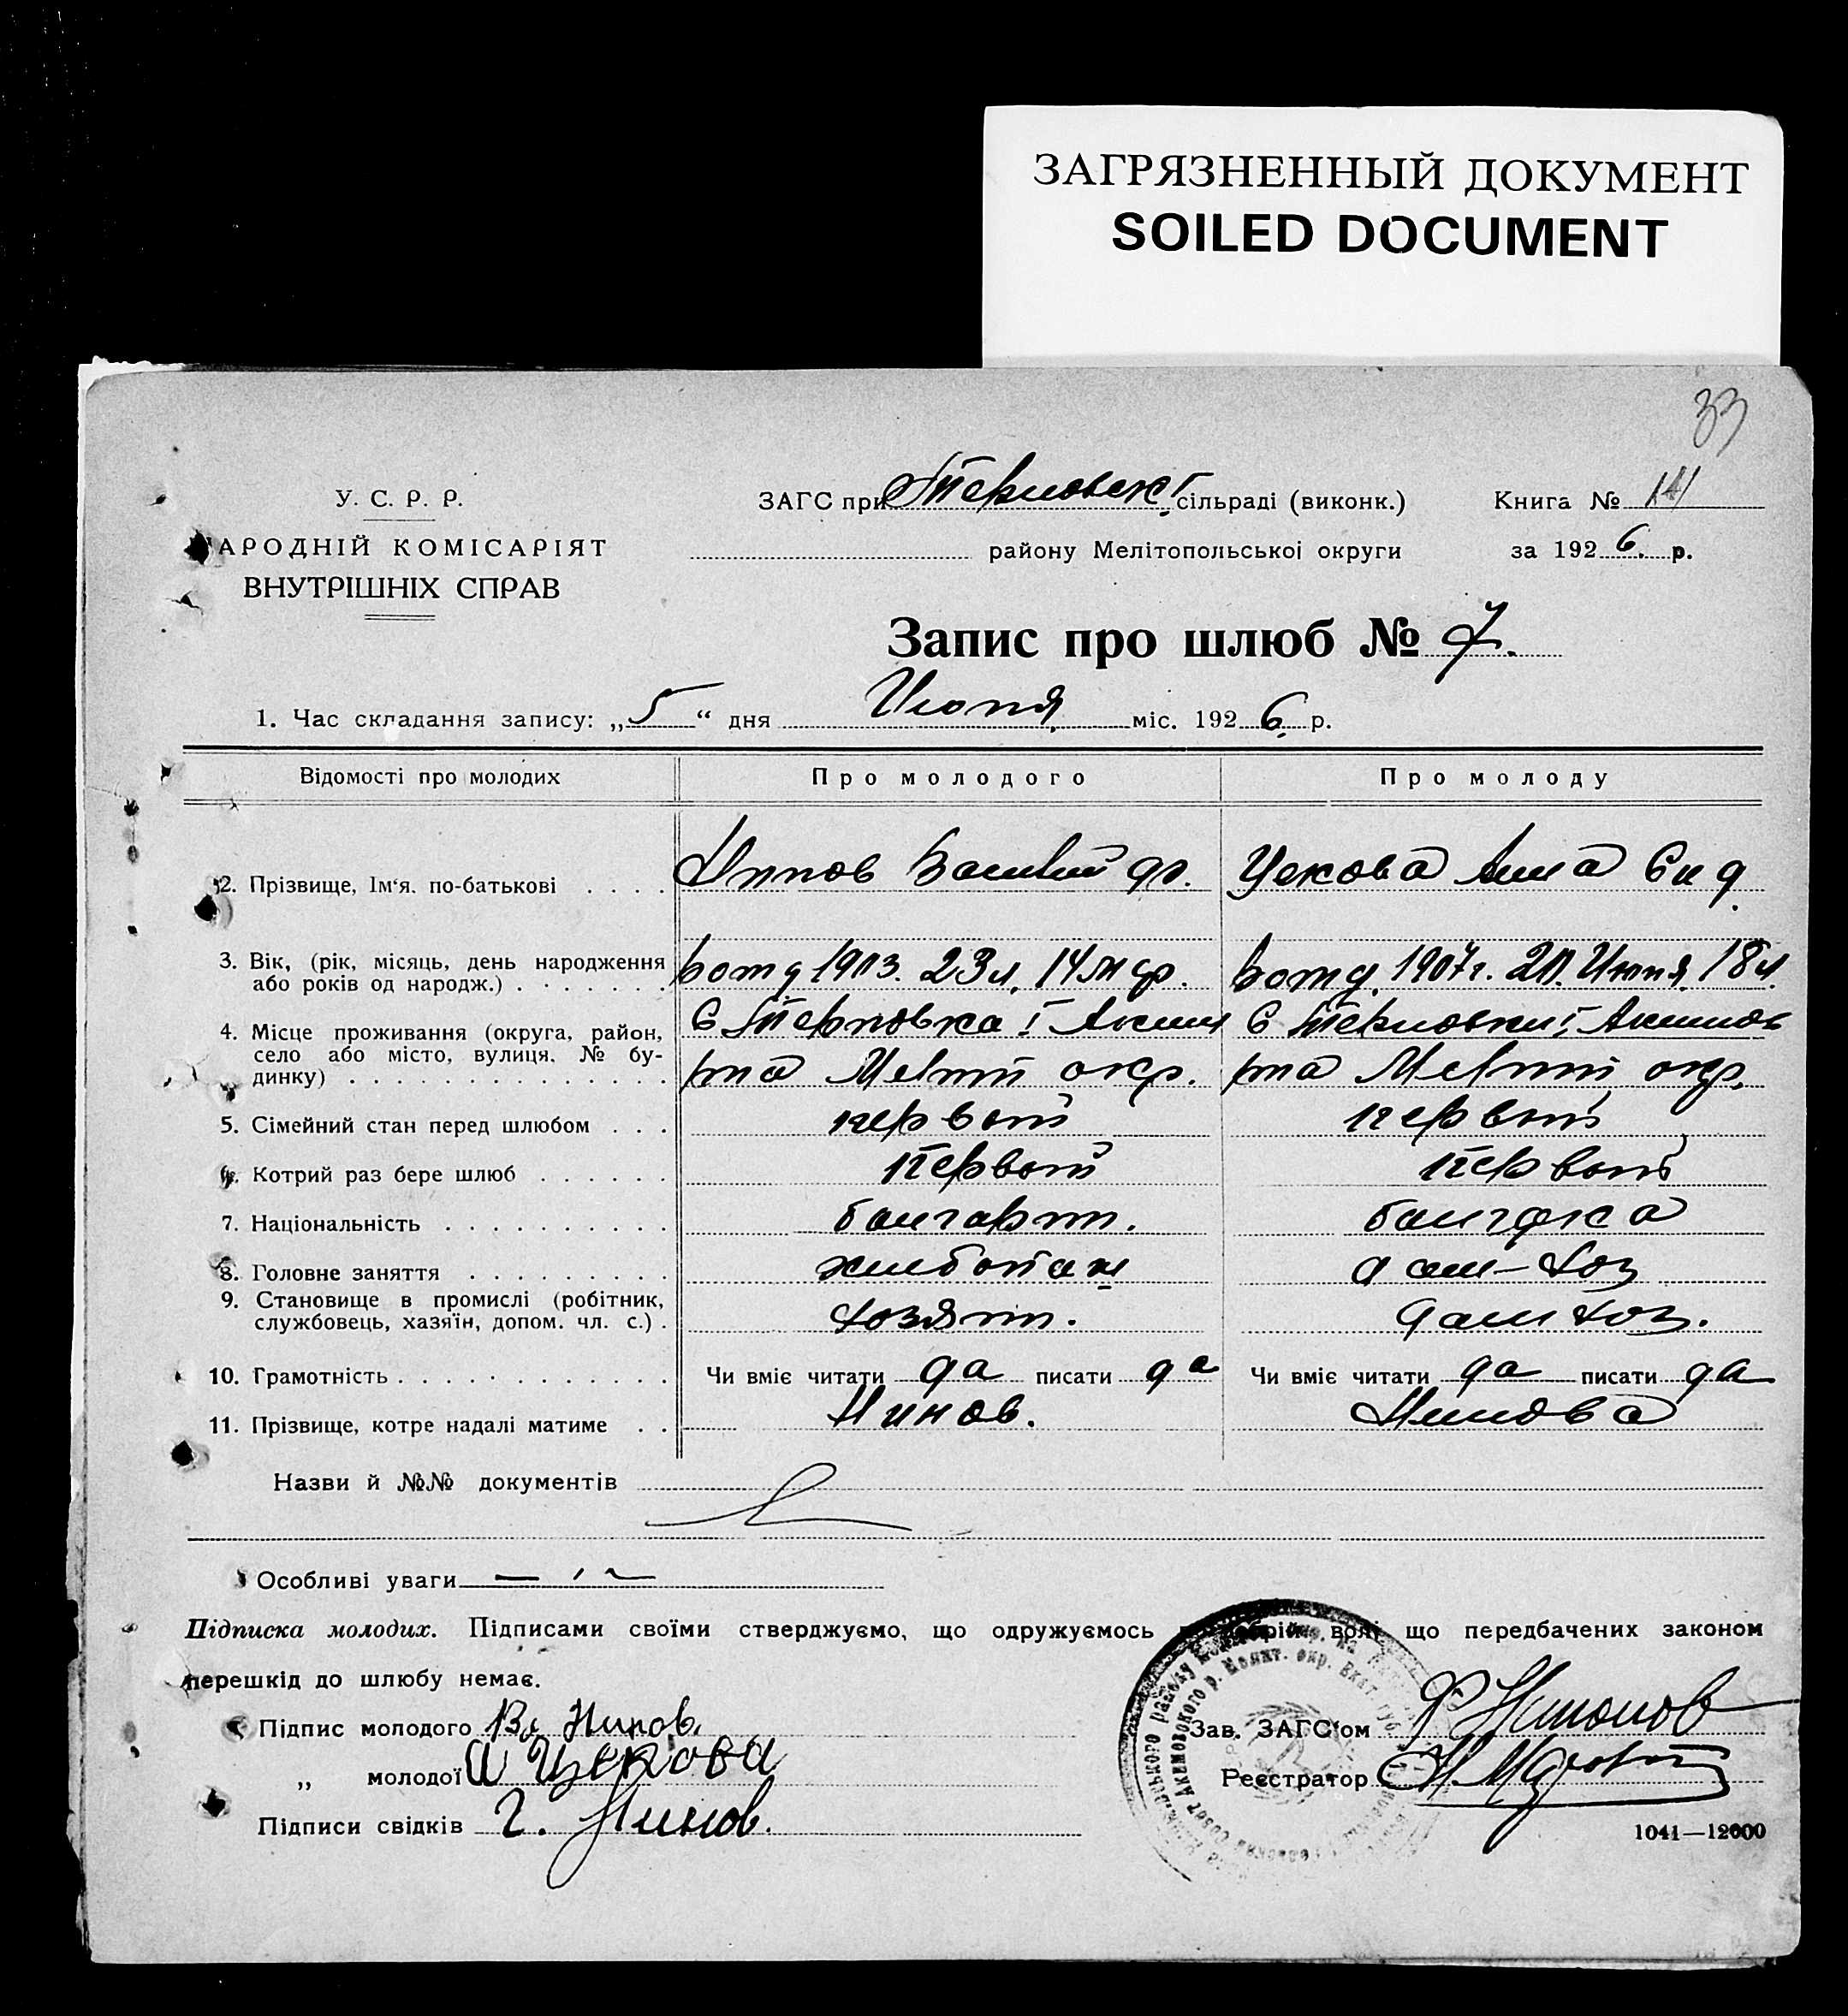 ЗАГРЯЗНЕННЫЙ ДОКУМЕНТ
SOILED DOCUMENT
33
У. С. Р. Р.
ЗАГС при сільраді (виконк.) Книга № 141
АРОДНІЙ КОМІСАРІЯТ
району Мелітопольської округи за 1926. р.
ВНУТРІШНІХ СПРАВ
Запис про шлюб № 7.
1. Час складання запису: „5“ дня Июня міс. 1926. р.
Відомості про молодих Про молодого Про молоду
2. Прізвище, Ім'я. по-батькові . . . . Нинов Василий Цекова Анна Сид.
3. Вік, (рік, місяць, день народження 1903. 23 л. 1907 г. Июня 18 л.
або років од народж.) . . . . . . .
4. Місце проживання (округа, район, С Терновка I С Терновки I
село або місто, вулиця, № бу-
динку) . . . . . . . . . . . . . . р на Мелит окр. р на Мелит окр.
5. Сімейний стан перед шлюбом . . . первый первый
6. Котрий раз бере шлюб . . . . . . первый первый
7. Національність . . . . . . . . . болгарин. болгарка
8. Головне заняття . . . . . . . . . хлебопаш дом-хоз
9. Становище в промислі (робітник,
службовець, хазяїн, допом. чл. с.) . хозяин. дом хоз.
10. Грамотність . . . . . . . . . . . Чи вміє читати да писати да Чи вміє читати да писати да
11. Прізвище, котре надалі матиме . . Нинов. Нинова
Назви й №№ документів
Особливі уваги
Підписка молодих. Підписами своїми стверджуємо, що одружуємось добрій волі що передбачених законом
перешкід до шлюбу немає.
Підпис молодого Вл Нинов.
Зав. ЗАГС'ом
„ молодої А Цекова
Реєстратор
Підписи свідків Г. Нинов.
1041—12000